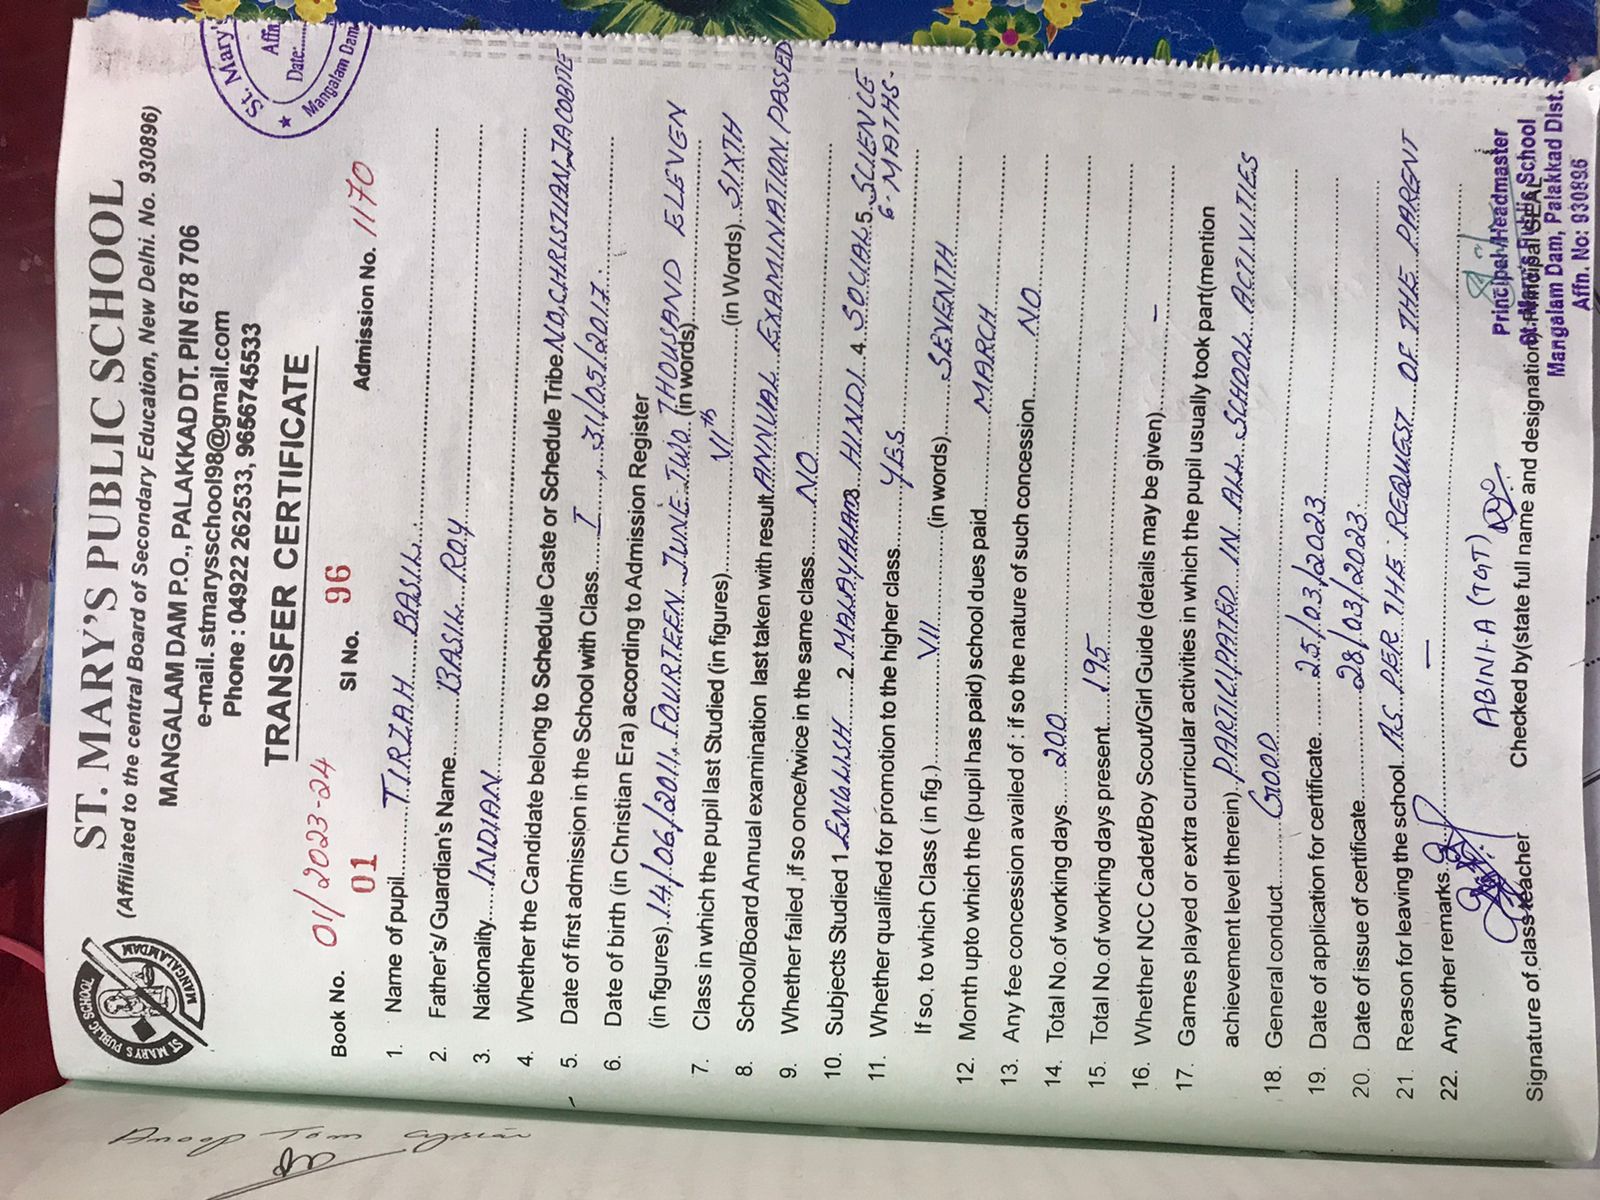 ST. MARY'S PUBLIC SCHOOL
(Affiliated to the central Board of Secondary Education, New Delhi. No. 930896)
MANGALAM DAM P.O., PALAKKAD DT. PIN 678 706
e-mail. stmarysschool98@gmail.com
Phone : 04922 262533, 9656745533
ST MARY'S PUBLIC SCHOOL MANGALAMDAM
St. Mary'
Affn
Date:
Mangalam Dam
TRANSFER CERTIFICATE
01/2023-24
Book No. 01 Sl No. 96 Admission No. 1170
1. Name of pupil TIRZAH BASIL
2. Father's/ Guardian's Name BASIL ROY
3. Nationality INDIAN
4. Whether the Candidate belong to Schedule Caste or Schedule Tribe NO, CHRISTIAN, JACOBITE
5. Date of first admission in the School with Class I, 31/05/2017.
6. Date of birth (in Christian Era) according to Admission Register
(in figures) 14/06/2011, FOURTEEN JUNE TWO THOUSAND ELEVEN (in words)
7. Class in which the pupil last Studied (in figures) VIth (in Words) SIXTH
8. School/Board Annual examination last taken with result ANNUAL EXAMINATION PASSED
9. Whether failed ,if so once/twice in the same class NO
10. Subjects Studied 1 ENGLISH 2. MALAYALAM 3. HINDI 4. SOCIAL 5. SCIENCE
6. MATHS.
11. Whether qualified for promotion to the higher class YES
If so, to which Class ( in fig.) VII (in words) SEVENTH
12. Month upto which the (pupil has paid) school dues paid MARCH
13. Any fee concession availed of : if so the nature of such concession NO
14. Total No.of working days 200
15. Total No.of working days present 195
16. Whether NCC Cadet/Boy Scout/Girl Guide (details may be given) –
17. Games played or extra curricular activities in which the pupil usually took part(mention
achievement level therein) PARTICIPATED IN ALL SCHOOL ACTIVITIES
18. General conduct GOOD
19. Date of application for certificate 25/03/2023
20. Date of issue of certificate 28/03/2023
21. Reason for leaving the school AS PER THE REQUEST OF THE PARENT
22. Any other remarks –
ABINI-A (TGT)
Signature of class teacher Checked by(state full name and designation) Principal SEAL
Principal/Headmaster
St. Mary's Public School
Mangalam Dam, Palakkad Dist.
Affn. No: 930896
Anoop Tom